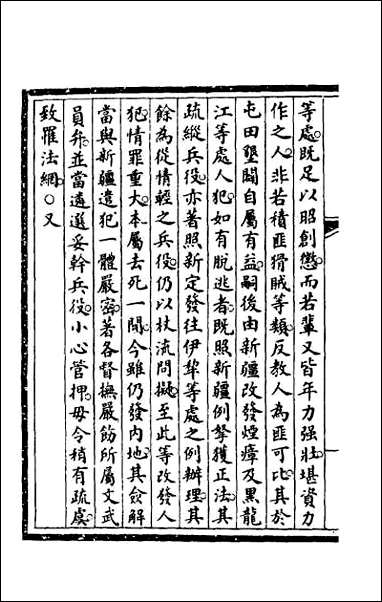 等處既足以昭創懲而若輩又皆年力强壯堪資力
作之人非若積匪猾賊等類反教人為匪可比其於
屯田墾闢自屬有益嗣後由新疆改發煙瘴及黑龍
江等處人犯如有脱逃者既照新疆例拏獲正法其
疏縱兵役亦著照新定發往伊犂等處之例辦理其
餘為從情輕之兵役仍以杖流問擬至此等改發人
犯情罪重大本屬去死一間今雖仍發内地其僉解
當與新疆遣犯一體嚴密著各督撫嚴飭所屬文武
員弁並當遴選妥幹兵役小心管押毋令稍有疏虞
致罹法網○又